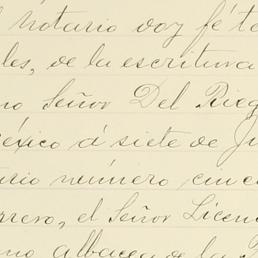 notario doy fé te
les, de la escritura
no Señor Del Rieg
éxico á siete de Ju
ario número cinc
rrero, el Señor Licen
no albacea de la